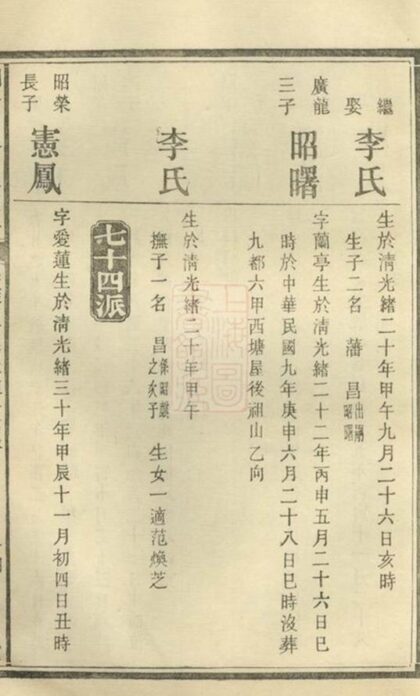 繼娶
李氏
生於淸光緖二十年甲午九月二十六日亥時
生子二名 藩 昌出嗣昭曙
廣龍三子
昭曙
字蘭亭生於淸光緖二十二年丙申五月二十六日巳
時於中華民國九年庚申六月二十八日巳時沒葬
九都六甲西塘屋後祖山乙向
李氏
生於淸光緖二十年甲午
撫子一名 昌係昭之次子 生女一適范煥芝
七十四派
昭榮長子
憲鳳
字愛蓮生於淸光緖三十年甲辰十一月初四日丑時